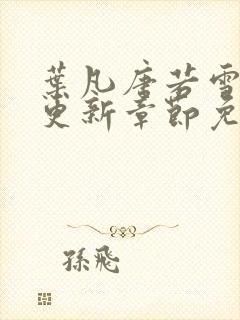 葉凡唐若雪
更新章節免
孫飛